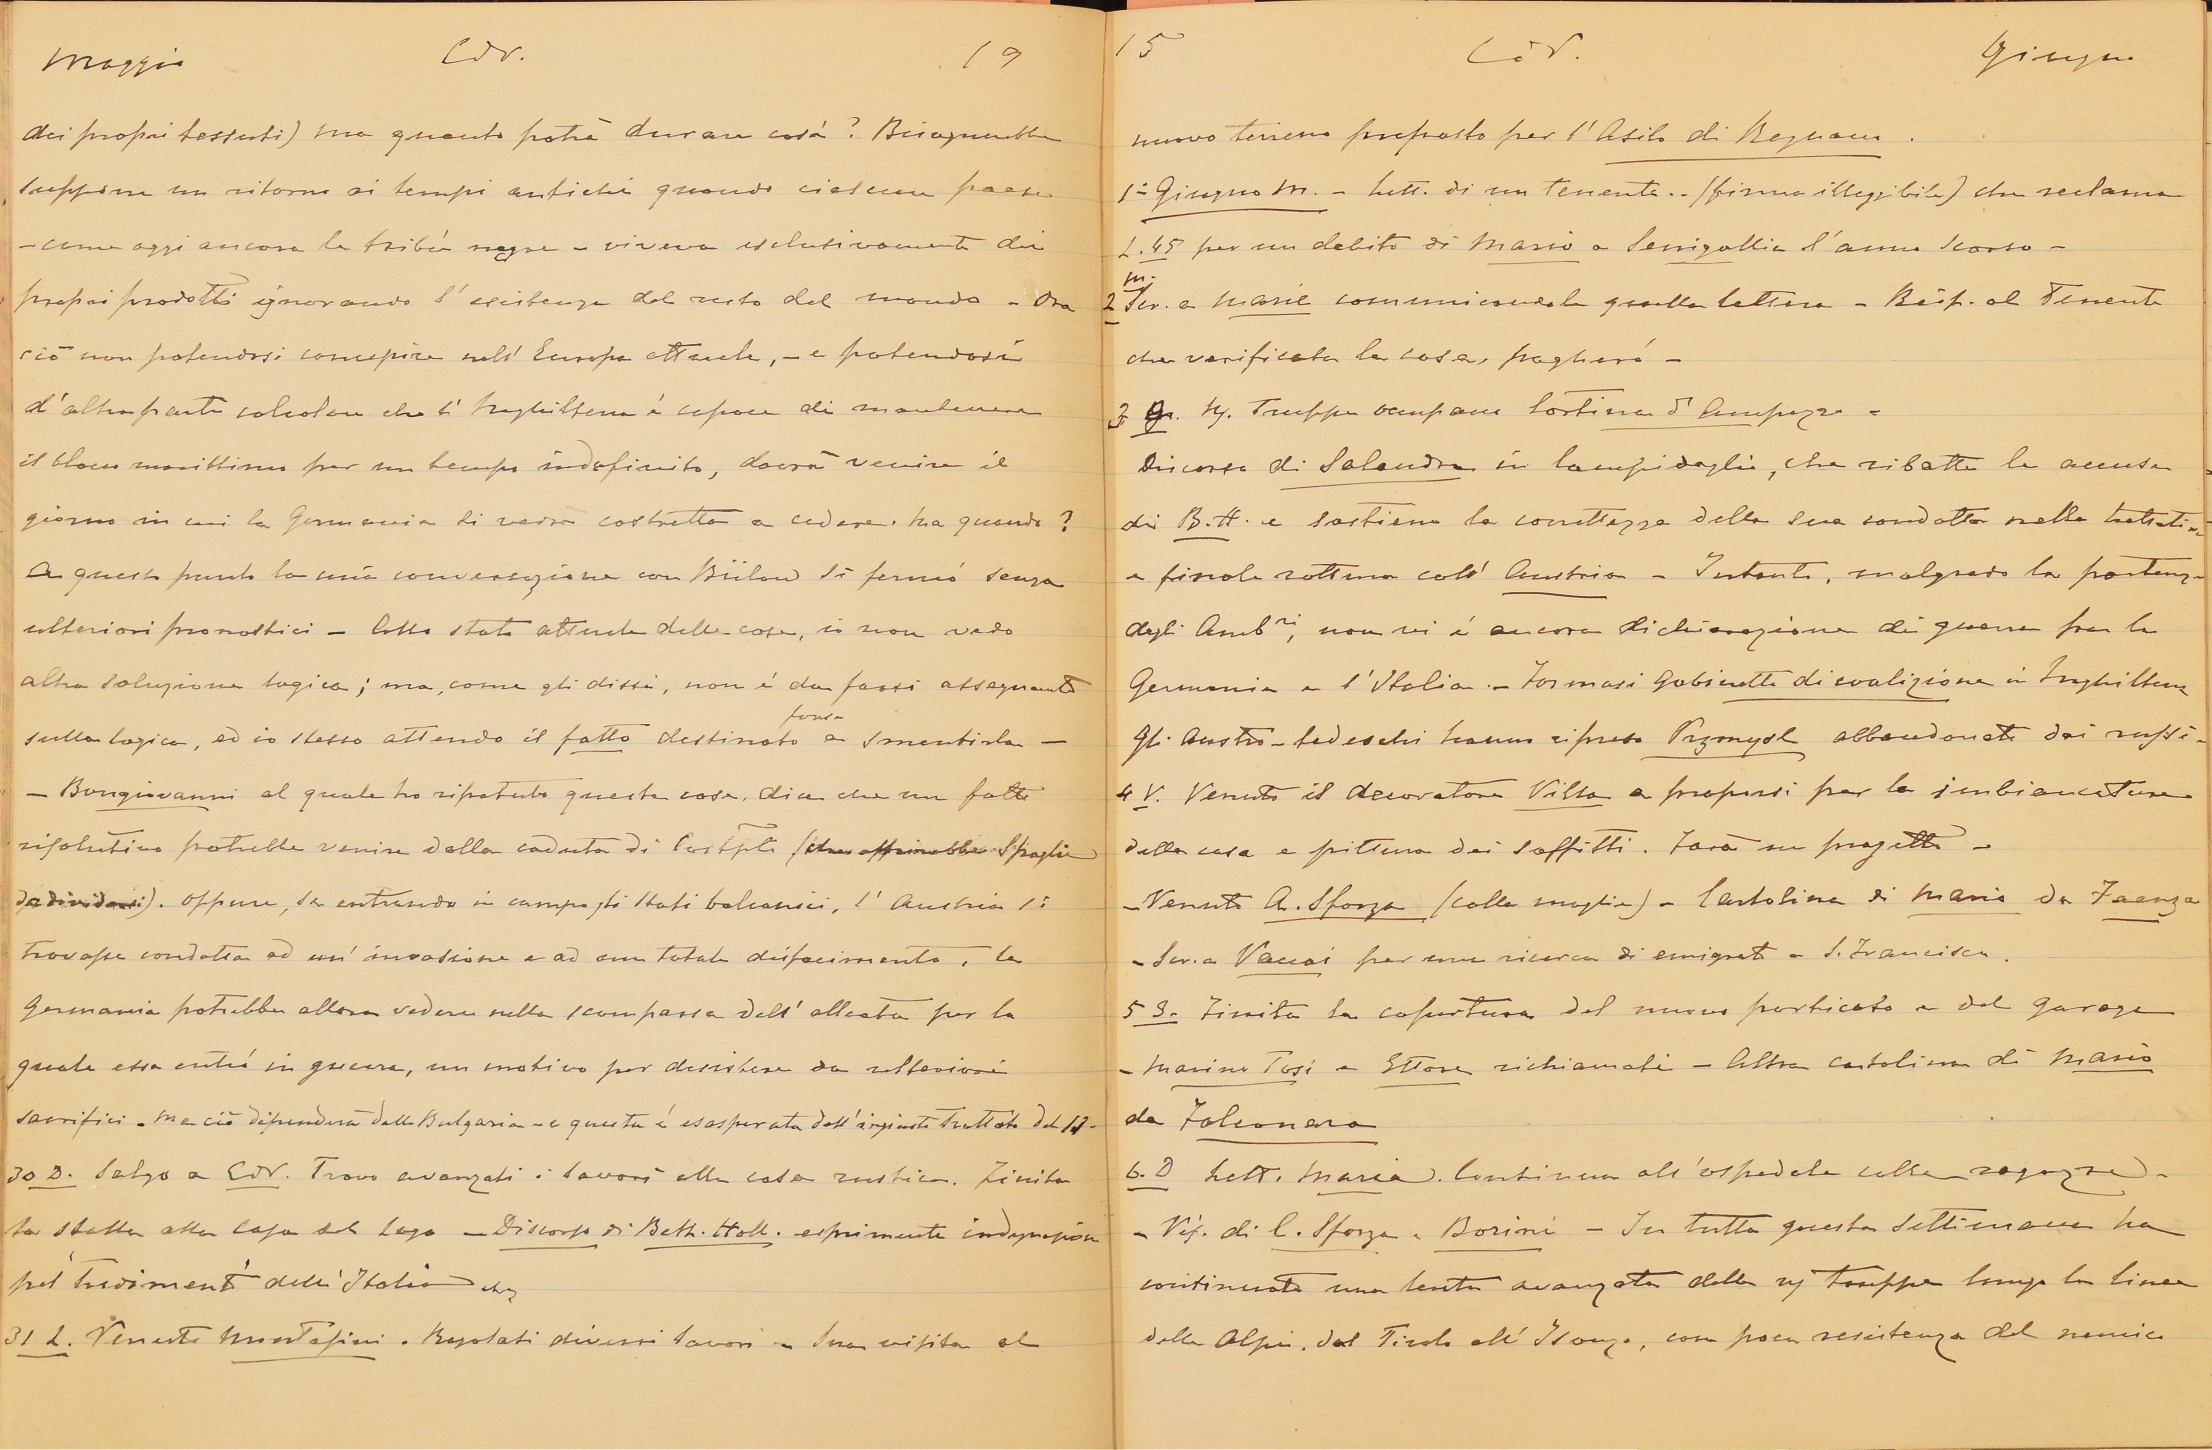 Maggio CdV. 19
dei propri tessuti) ma quanto potrà durare così? Bisognerebbe
supporre un ritorno ai tempi antichi quando ciascun paese
- come oggi ancora le tribù negre - viveva esclusivamente dei
propri prodotti ignorando l'esistenza del resto del mondo - Ora
ciò non potendosi concepire nell'Europa attuale, - e potendosi
d'altra parte calcolare che l'Inghilterra è capace di mantenere
il blocco marittimo per un tempo indefinito, dovrà venire il
giorno in cui la Germania si vedrà costretta a cedere. Ma quando?
A questo punto la mia conversazione con Bülow si fermò senza
ulteriori pronostici - Allo stato attuale delle cose, io non vedo
altra soluzione logica; ma, come gli dissi, non è da farsi assegnamento
sulla logica, ed io stesso attendo il fatto destinato forse a smentirla -
- Bongiovanni al quale ho ripetuto queste cose, dice che un fatto
risolutivo potrebbe venire dalla caduta di Costpli (che offrirebbe Spoglie
da dividersi). oppure, se entrando in campo gli Stati balcanici, l'Austria si
trovasse condotta ad un'invasione e ad un totale disfacimento, la
Germania potrebbe allora vedere nella scomparsa dell'alleata per la
quale essa entrò in guerra, un motivo per desistere da ulteriori
sacrifici. Ma ciò dipenderà dalla Bulgaria - e questa è esasperata dall'ingiusto Trattato del 13-
30 D. Salgo a CdV. Trovo avanzati i lavori alla casa rustica. Finita
la stalla alla Casa del Lago - Discorso di Beth. Holl. esprimente indignazione
pel "tradimento" dell'Italia
31 L. Venuto Montasini. Regolati diversi lavori - Sua visita al
15 CdV. Giugno
nuovo terreno proposto per l'Asilo di Regnano.
1° Giugno M. - Lett. di un tenente.. (firma illeggibile) che reclama
L. 45 per un debito di Mario a Senigallia l'anno scorso -
2 m. Scr. a Mario comunicandole quella lettera - Risp. al Tenente
che verificata la cosa, pagherò -
3 G. Ns. Truppe occupano Cortina d'Ampezzo -
Discorso di Salandra in Campidoglio, che ribatte le accuse
di B.H. e sostiene la correttezza della sua condotta nelle trattative
e finale rottura coll'Austria - Intanto, malgrado la partenza
degli Ambri, non vi è ancora dichiarazione di guerra fra la
Germania e l'Italia. - Formasi Gabinetto di coalizione in Inghilterra
Gli Austro-tedeschi hanno ripreso Przmysl abbandonata dai russi -
4 V. Venuto il decoratore Villa a proporsi per la imbiancatura
della casa e pittura dei soffitti. Farà un progetto -
- Venuto A. Sforza (colla moglie) - Cartolina di Mario da Faenza
- Scr. a Vaccai per una ricerca di emigrati a S. Francisco.
5 S. Finita la copertura del nuovo porticato e del garage
- Marino Tosi e Ettore richiamati - Altra cartolina di Mario
da Falconara
6. D Lett. Maria. Continua all'ospedale colle ragazze -
- Vis. di C. Sforza e Borini - In tutta questa settimana ha
continuato una lenta avanzata delle ns truppe lungo la linea
delle Alpi, dal Tirolo all'Isonzo, con poca resistenza del nemico